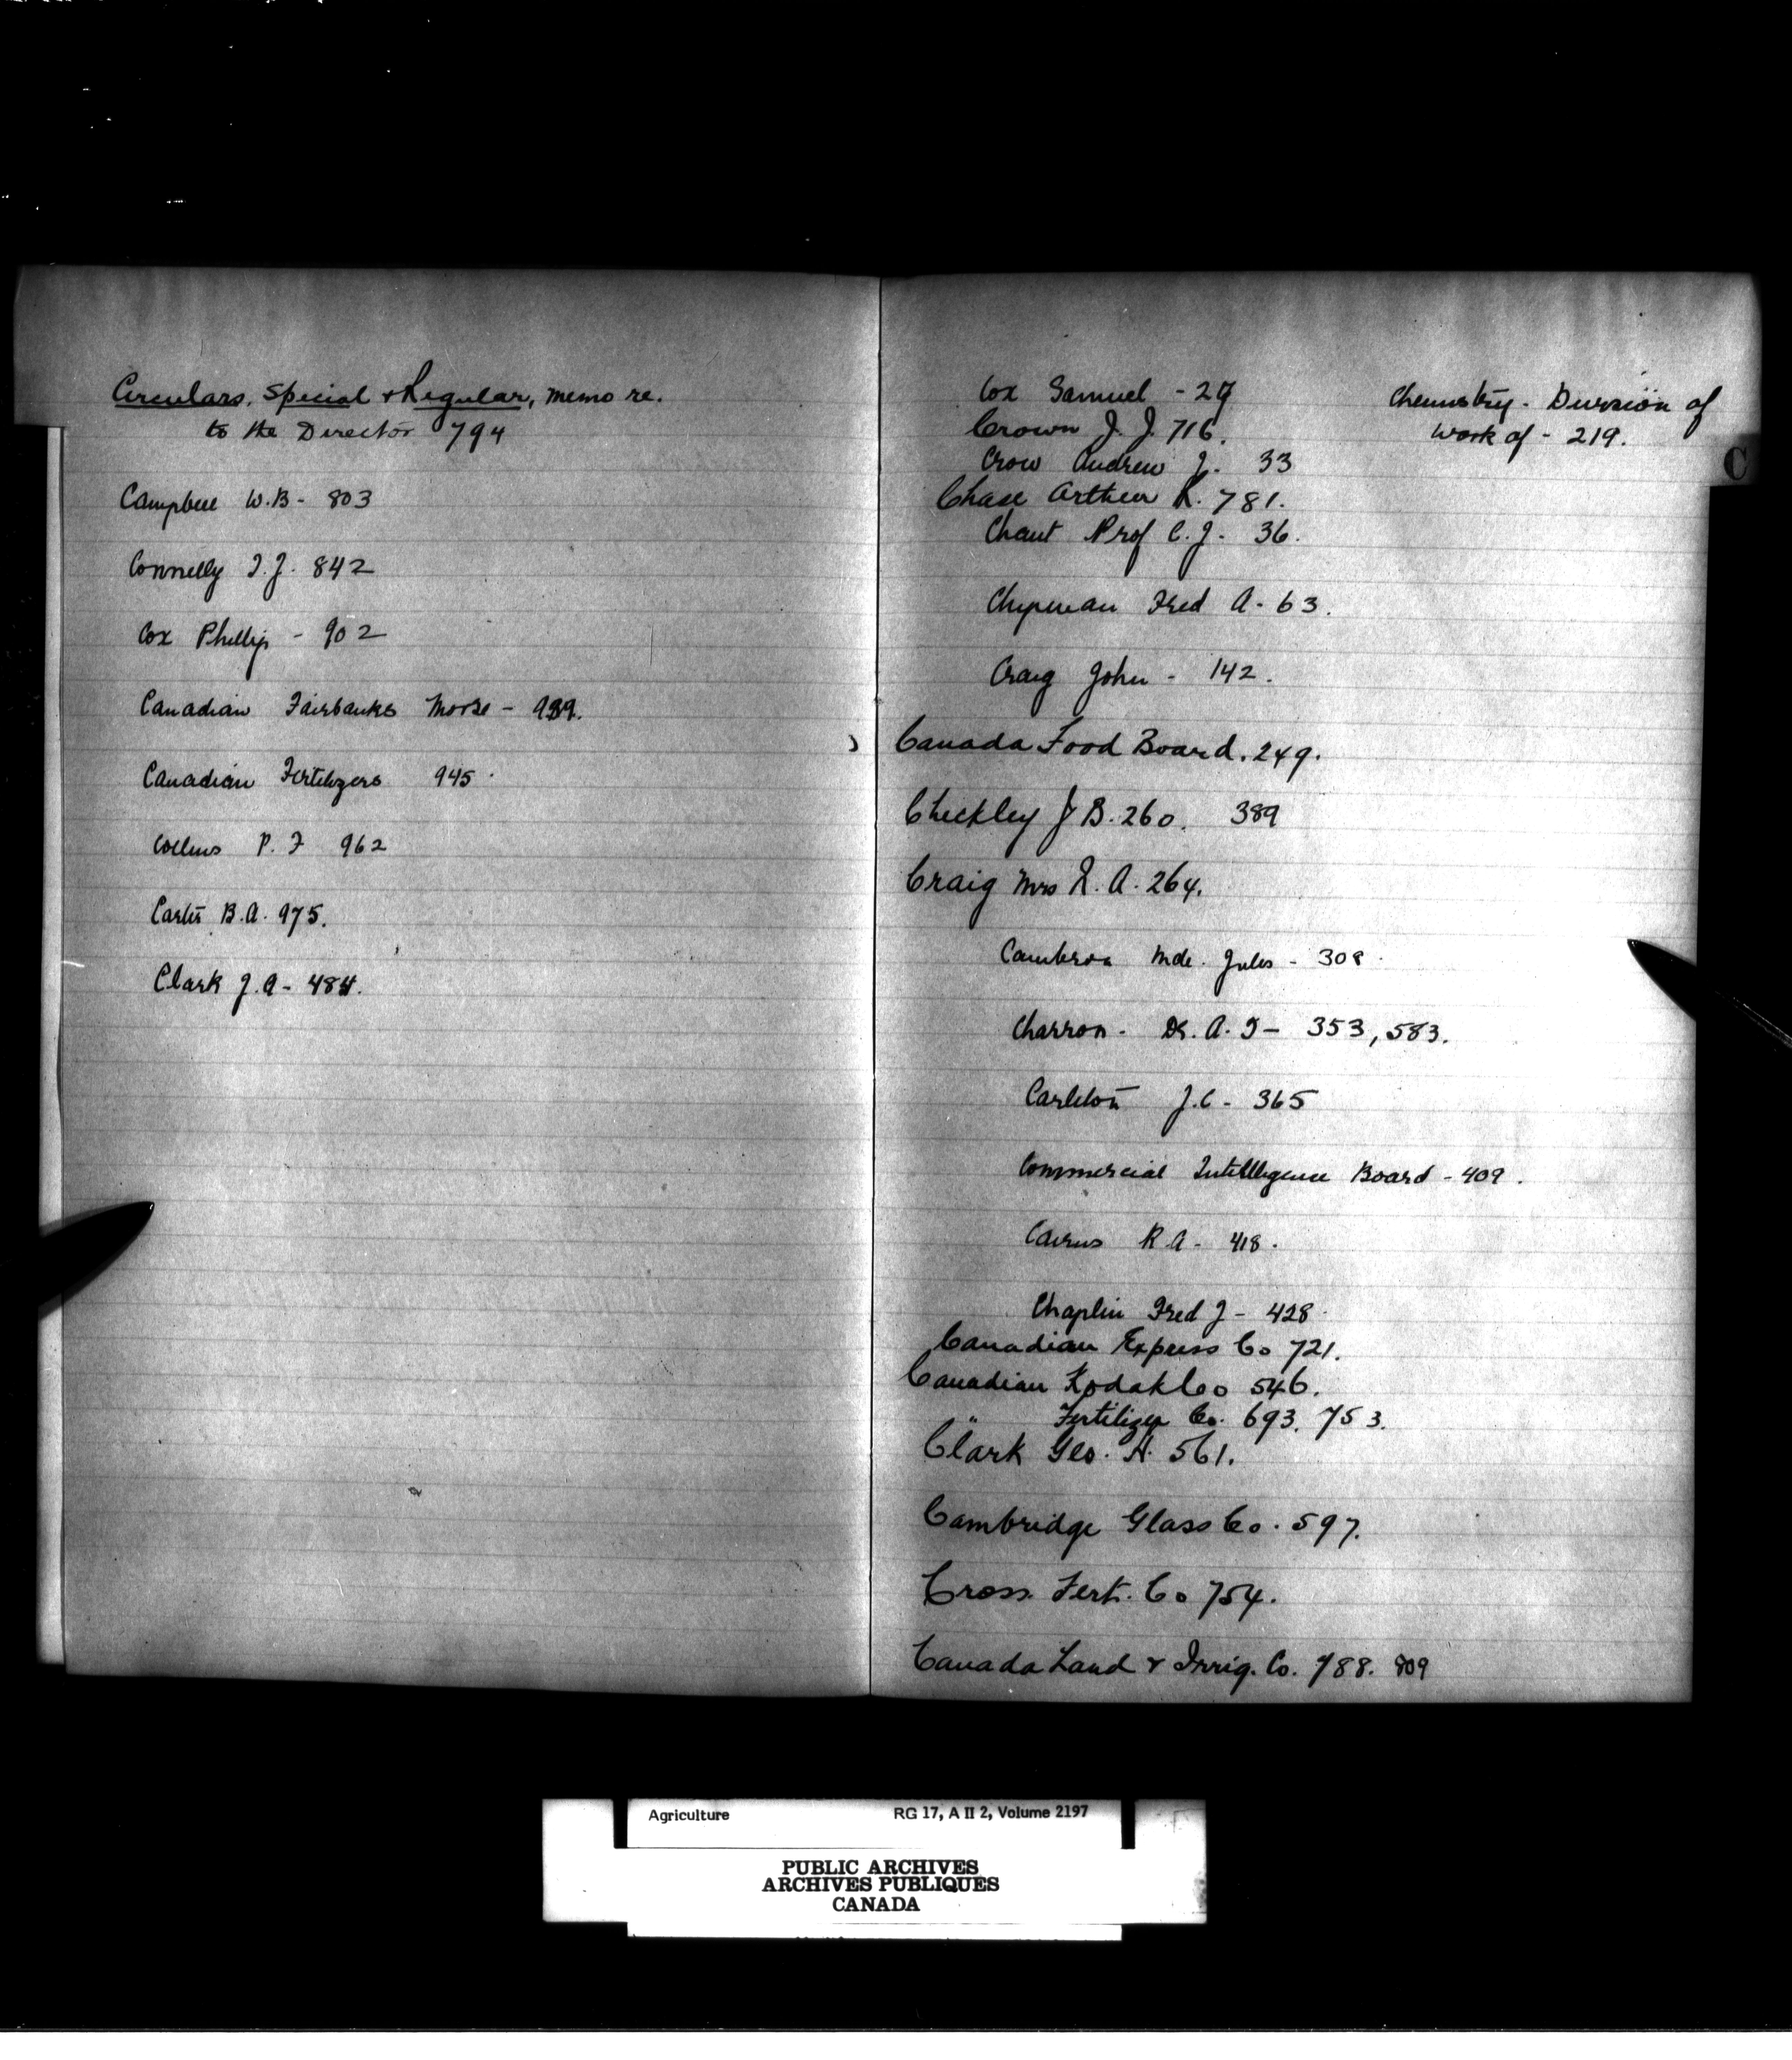 Circulars, Special & Regular, memo re.
to the Director 794
Campbell W.B - 803
Connelly T.J. 842
Cox Phillip - 902
Canadian Fairbanks Morse - 939.
Canadian Fertilizers 945.
Collins P. F 962
Carter B.A. 975.
Clark J.A - 484.
Cox Samuel - 29
Crown J. J. 716.
Crow Andrew J. 33
Chase Arthur K. 781.
Chant Prof C.J. 36.
Chipman Fred A. 63.
Craig John - 142.
Canada Food Board. 249.
Checkley J B. 260. 389
Craig Mrs R. A. 264.
Cambron Mde. Jules - 308.
Charron - Dr. A. T - 353, 583.
Carleton J.C - 365
Commercial Intelligence Board - 409.
Cairns R A - 418.
Chaplin Fred J - 428.
Canadian Express Co 721.
Canadian Kodak Co 546.
" Fertilizer Co. 693. 753.
Clark Geo. H. 561.
Cambridge Glass Co. 597.
Cross. Fert. Co 754.
Canada Land & Irrig. Co. 788. 809
Chemistry - Division of
work of - 219.
C
Agriculture RG 17, A II 2, Volume 2197
PUBLIC ARCHIVES
ARCHIVES PUBLIQUES
CANADA